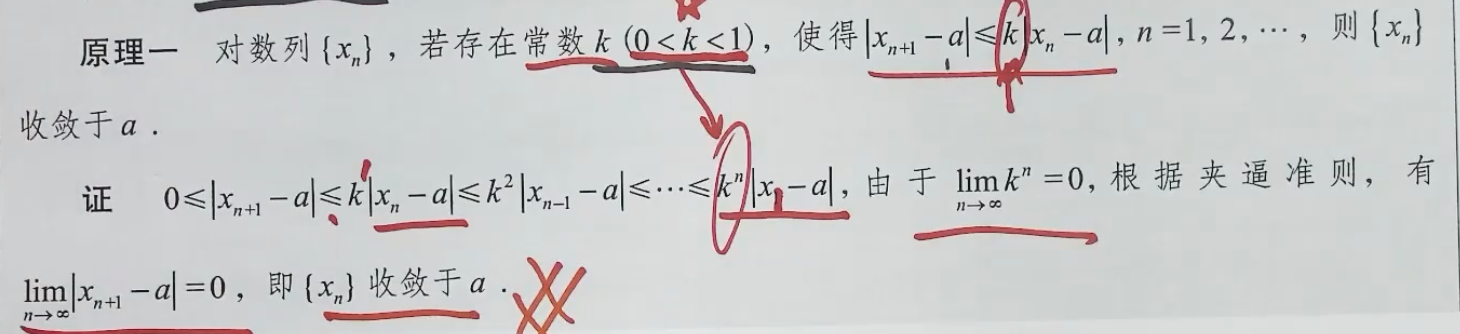 原理一 对数列{xₙ}，若存在常数k (0<k<1)，使得|xₙ₊₁−a|≤k|xₙ−a|, n=1, 2, ⋯，则{xₙ}
收敛于a．
证 0≤|xₙ₊₁−a|≤k|xₙ−a|≤k²|xₙ₋₁−a|≤⋯≤kⁿ|x₁−a|，由于 lim_{n→∞} kⁿ=0, 根据夹逼准则，有
lim_{n→∞}|xₙ₊₁−a|=0，即{xₙ}收敛于a．